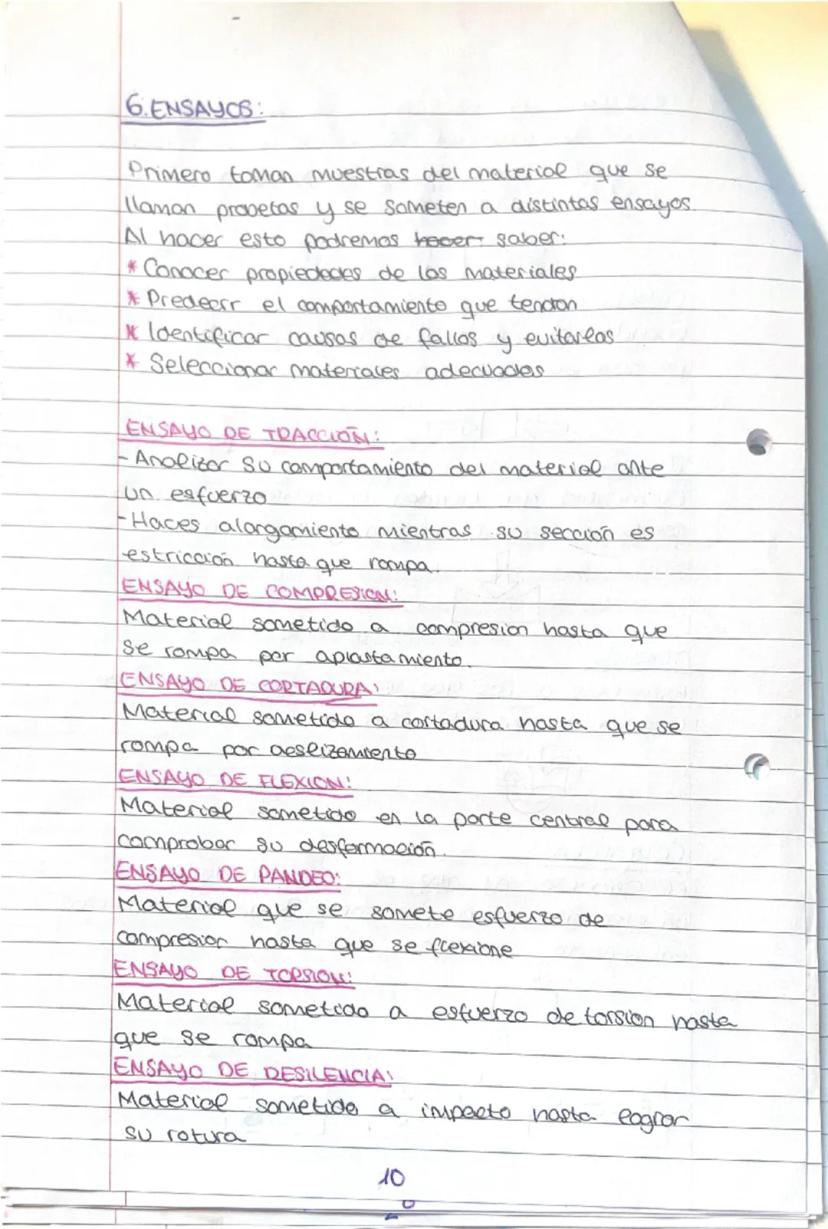 6. ENSAYOS:
Primero toman muestras del material que se
llaman probetas y se someten a distintos ensayos.
Al hacer esto podremos hacer saber:
* Conocer propiedades de los materiales
* Predecir el comportamiento que tendran
* Identificar causas de fallos y evitarlas
* Seleccionar materiales adecuados
ENSAYO DE TRACCIÓN:
- Analizar su comportamiento del material ante
un esfuerzo
- Haces alargamiento mientras su sección es
estriccion hasta que rompa.
ENSAYO DE COMPRESION:
Material sometido a compresion hasta que
se rompa por aplastamiento.
ENSAYO DE CORTADURA:
Material sometido a cortadura hasta que se
rompa por deslizamiento
ENSAYO DE FLEXION:
Material sometido en la parte central para
comprobar su desformación.
ENSAYO DE PANDEO:
Material que se somete esfuerzo de
compresion hasta que se flexione
ENSAYO DE TORSION:
Material sometido a esfuerzo de torsion hasta
que se rompa
ENSAYO DE RESILENCIA:
Material sometido a impacto hasta lograr
su rotura
10